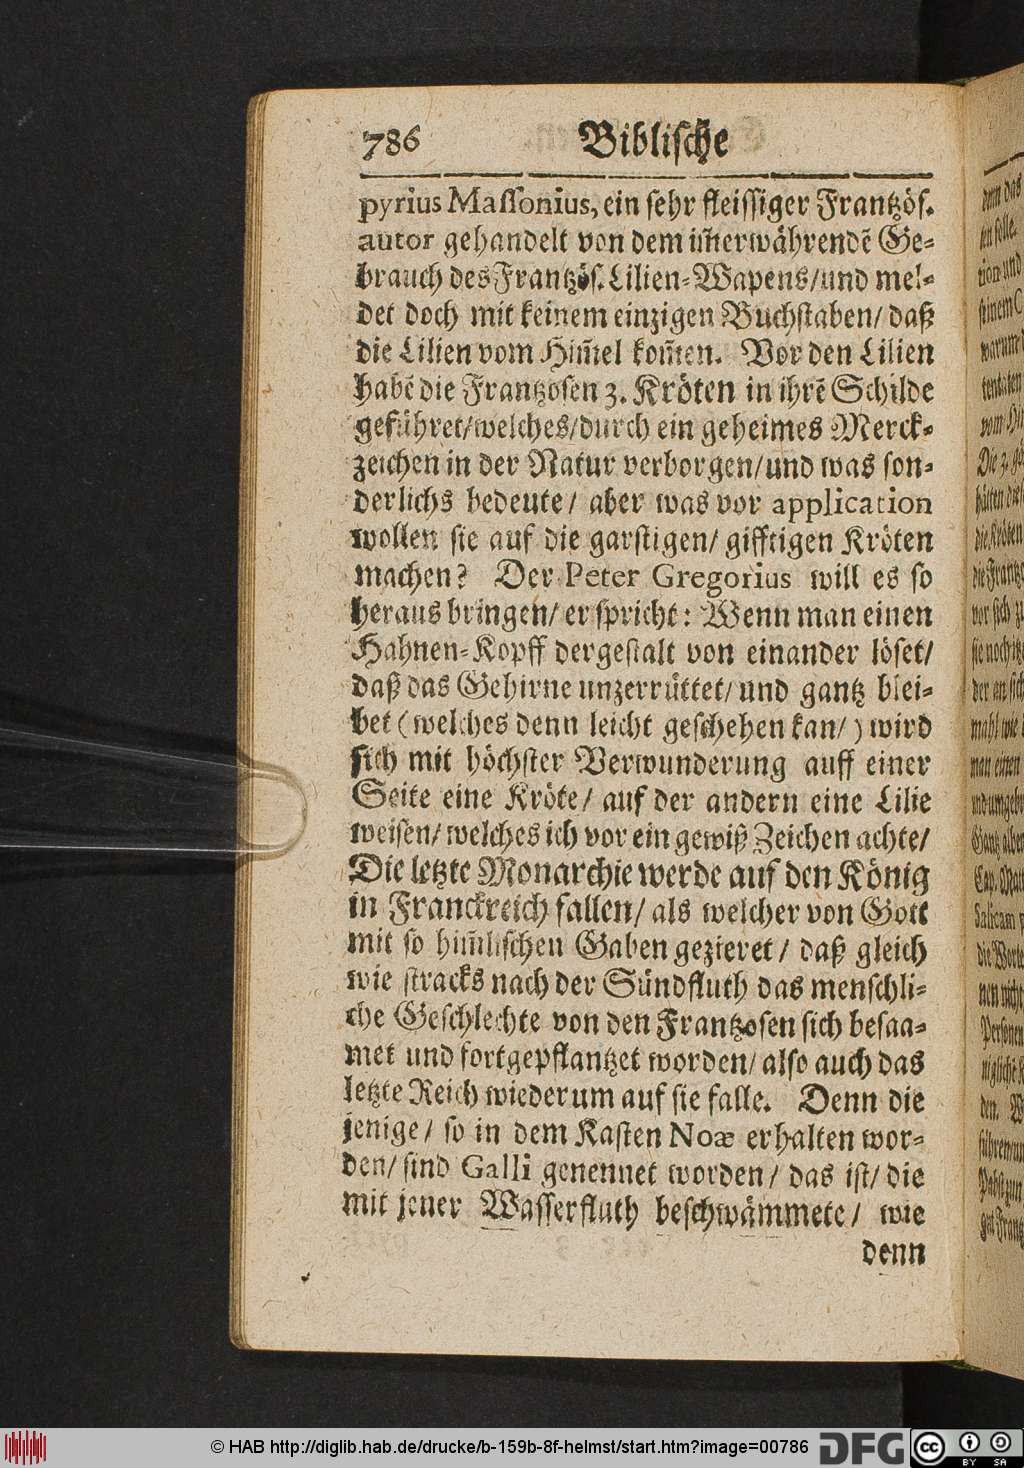 786 Biblische
pyrius Massonius, ein sehr fleissiger Frantzös.
autor gehandelt von dem im̃erwährendẽ Ge-
brauch des Frantzös. Lilien-Wapens/und mel-
det doch mit keinem einzigen Buchstaben/ daß
die Lilien vom Him̃el kom̃en. Vor den Lilien
habẽ die Frantzosen 3. Kröten in ihrẽ Schilde
geführet/welches/durch ein geheimes Merck-
zeichen in der Natur verborgen/und was son-
derlichs bedeute/ aber was vor application
wollen sie auf die garstigen/ gifftigen Kröten
machen? Der Peter Gregorius will es so
heraus bringen/ er spricht: Wenn man einen
Hahnen-Kopff dergestalt von einander löset/
daß das Gehirne unzerrüttet/ und gantz blei-
bet (welches denn leicht geschehen kan/) wird
sich mit höchster Verwunderung auff einer
Seite eine Kröte/ auf der andern eine Lilie
weisen/ welches ich vor ein gewiß Zeichen achte/
Die letzte Monarchie werde auf den König
in Franckreich fallen/ als welcher von Gott
mit so him̃lischen Gaben gezieret/ daß gleich
wie stracks nach der Sündfluth das menschli-
che Geschlechte von den Frantzosen sich besaa-
met und fortgepflantzet worden/ also auch das
letzte Reich wiederum auf sie falle. Denn die
jenige/ so in dem Kasten Noæ erhalten wor-
den/ sind Galli genennet worden/ das ist/ die
mit jener Wasserfluth beschwämmete/ wie
denn
© HAB http://diglib.hab.de/drucke/b-159b-8f-helmst/start.htm?image=00786 DFG cc BY SA